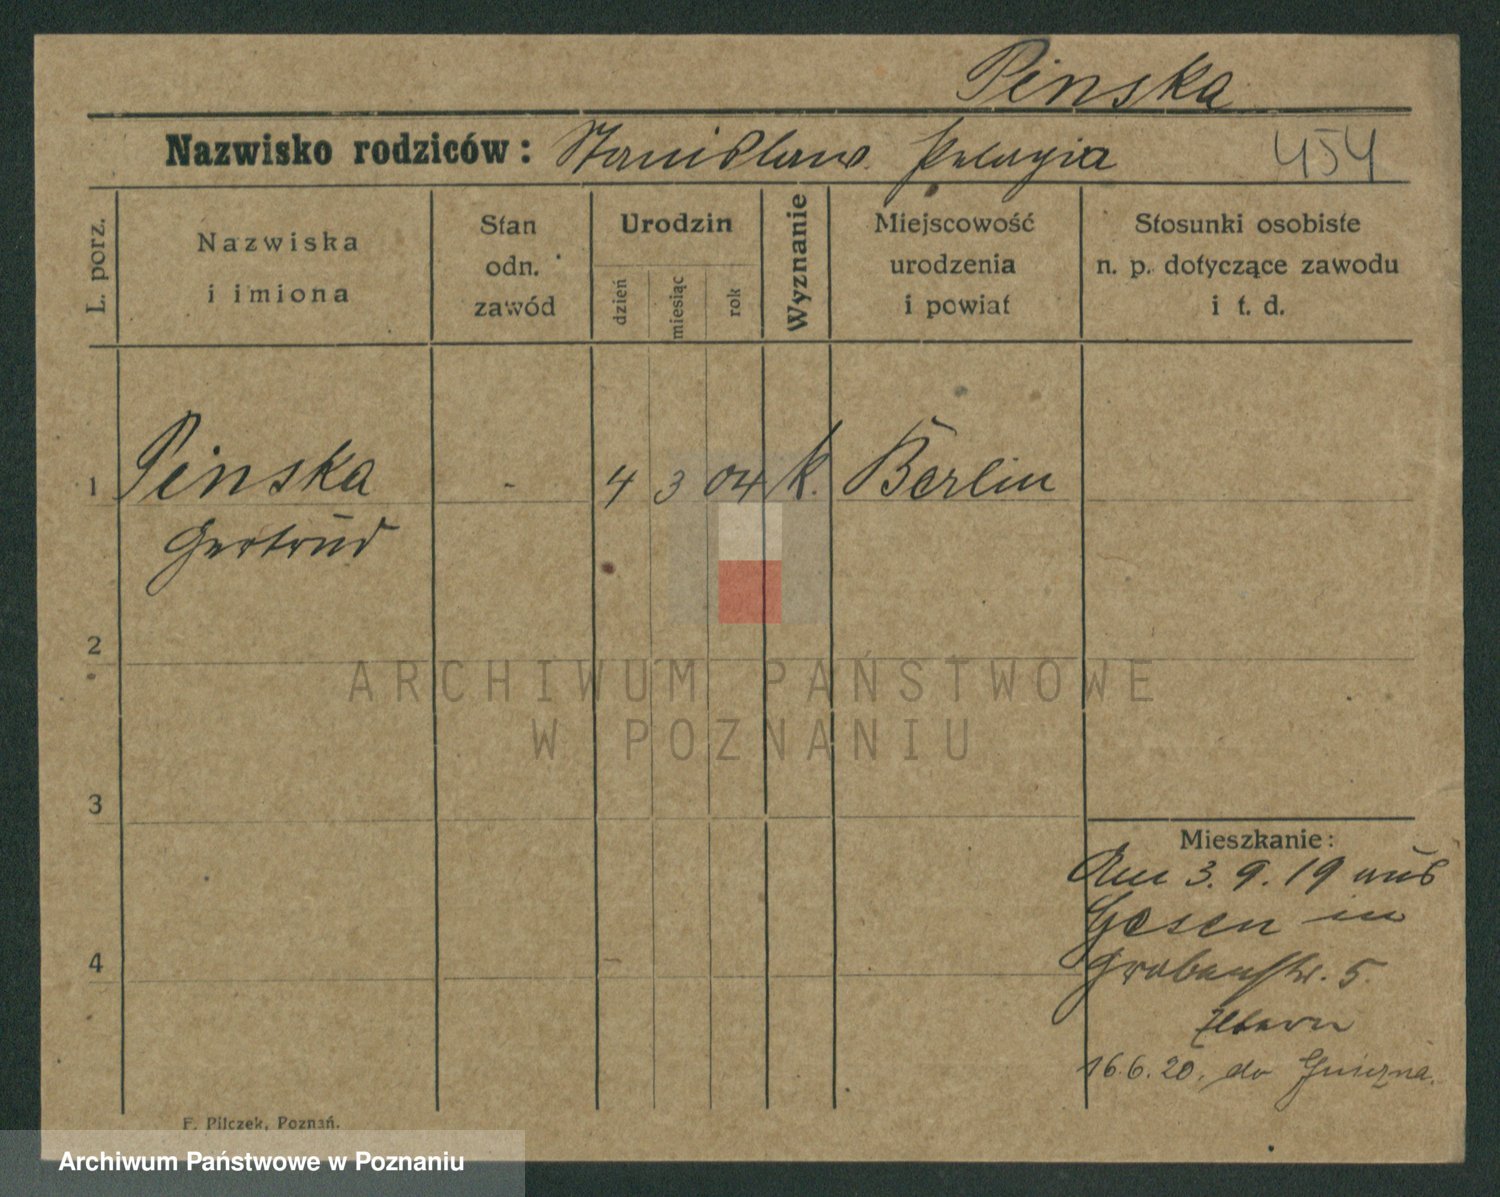 Pinska
Nazwisko rodziców: Stanislaus Pelagia 454
L. porz.
Nazwiska
i imiona
Stan
odn.
zawód
Urodzin
dzień
miesiąc
rok
Wyznanie
Miejscowość
urodzenia
i powiat
Stosunki osobiste
n. p. dotyczące zawodu
i t. d.
1 Pinska - 4 3 04 k. Berlin
Gertrud
2
3
4
Mieszkanie:
Am 3. 9. 19 aus
Gnesen in
Grabenstr. 5.
Eltern
16.6.20. do Gniezna.
F. Pilczek, Poznań.
ARCHIWUM PAŃSTWOWE
W POZNANIU
Archiwum Państwowe w Poznaniu